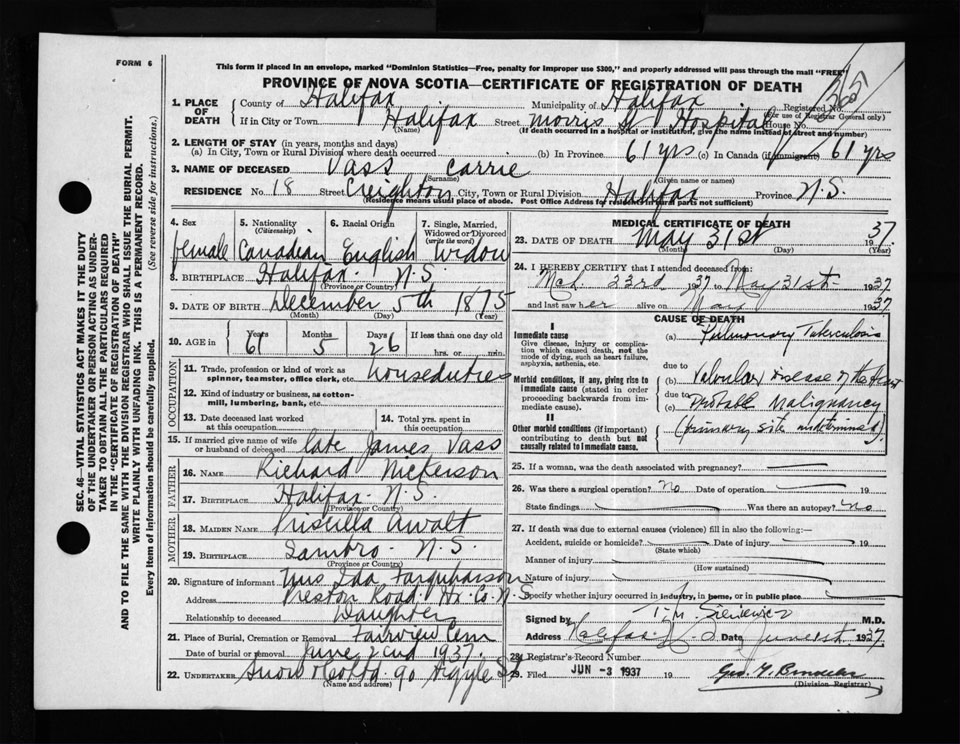 FORM 6
This form if placed in an envelope, marked "Dominion Statistics—Free, penalty for improper use $300," and properly addressed will pass through the mail "FREE"
PROVINCE OF NOVA SCOTIA—CERTIFICATE OF REGISTRATION OF DEATH
1. PLACE OF DEATH County of Halifax Municipality of Halifax Registered No.
(For use of Registrar General only)
If in City or Town Halifax Street Morris St Hospital House No.
(Name) (If death occurred in a hospital or institution, give the name instead of street and number)
2. LENGTH OF STAY (in years, months and days)
(a) In City, Town or Rural Division where death occurred (b) In Province 61 yrs (c) In Canada (if immigrant) 61 yrs
3. NAME OF DECEASED Vass Carrie
(Surname) (Given name or names)
RESIDENCE No. 18 Street Creighton City, Town or Rural Division Halifax Province N.S.
(Residence means usual place of abode. Post Office Address for residents in rural parts not sufficient)
4. Sex female
5. Nationality (Citizenship) Canadian
6. Racial Origin English
7. Single, Married, Widowed or Divorced (write the word) Widow
8. BIRTHPLACE Halifax - N.S.
(Province or Country)
9. DATE OF BIRTH December 5th 1875
(Month) (Day) (Year)
10. AGE in Years 61 Months 5 Days 26 If less than one day old
hrs. or min.
OCCUPATION
11. Trade, profession or kind of work as spinner, teamster, office clerk, etc. houseduties
12. Kind of industry or business, as cotton-mill, lumbering, bank, etc.
13. Date deceased last worked at this occupation
14. Total yrs. spent in this occupation
15. If married give name of wife or husband of deceased late James Vass
FATHER
16. NAME Richard
17. BIRTHPLACE Halifax - N.S.
(Province or Country)
MOTHER
18. MAIDEN NAME Priscilla Awalt
19. BIRTHPLACE Sambro - N.S.
(Province or Country)
20. Signature of informant Mrs Ida Farquharson
Address Preston Road. Hx. Co. N.S.
Relationship to deceased Daughter
21. Place of Burial, Cremation or Removal Fairview Cem
Date of burial or removal June 2nd 1937.
22. UNDERTAKER Snow & Co Ltd 90 Argyle St
(Name and address)
MEDICAL CERTIFICATE OF DEATH
23. DATE OF DEATH May 31st 1937.
(Month) (Day) (Year)
24. I HEREBY CERTIFY that I attended deceased from
23rd 1937 to May 31st 1937
and last saw her alive on May 1937
CAUSE OF DEATH
I
Immediate cause
Give disease, injury or complication which caused death, not the mode of dying, such as heart failure, asphyxia, asthenia, etc.
(a) Pulmonary Tuberculosis
due to
Morbid conditions, if any, giving rise to immediate cause (stated in order proceeding backwards from immediate cause).
(b) Valvular disease of the Heart
due to
(c) Malignancy
II
Other morbid conditions (if important) contributing to death but not causally related to immediate cause.
(primary site undetermined)
25. If a woman, was the death associated with pregnancy?
26. Was there a surgical operation? no Date of operation 19
State findings Was there an autopsy? no
27. If death was due to external causes (violence) fill in also the following:—
Accident, suicide or homicide? Date of injury 19
(State which)
Manner of injury
(How sustained)
Nature of injury
Specify whether injury occurred in industry, in home, or in public place
Signed by M.D.
Address Halifax N.S. Date June 1st. 1937
28. Registrar's Record Number
29. Filed JUN -3 1937 19
(Division Registrar)
SEC. 46—VITAL STATISTICS ACT MAKES IT THE DUTY
OF THE UNDERTAKER OR PERSON ACTING AS UNDER-
TAKER TO OBTAIN ALL THE PARTICULARS REQUIRED
IN THE "CERTIFICATE OF REGISTRATION OF DEATH"
AND TO FILE THE SAME WITH THE DIVISION REGISTRAR WHO SHALL ISSUE THE BURIAL PERMIT.
WRITE PLAINLY WITH UNFADING INK. THIS IS A PERMANENT RECORD.
Every item of information should be carefully supplied. (See reverse side for instructions.)